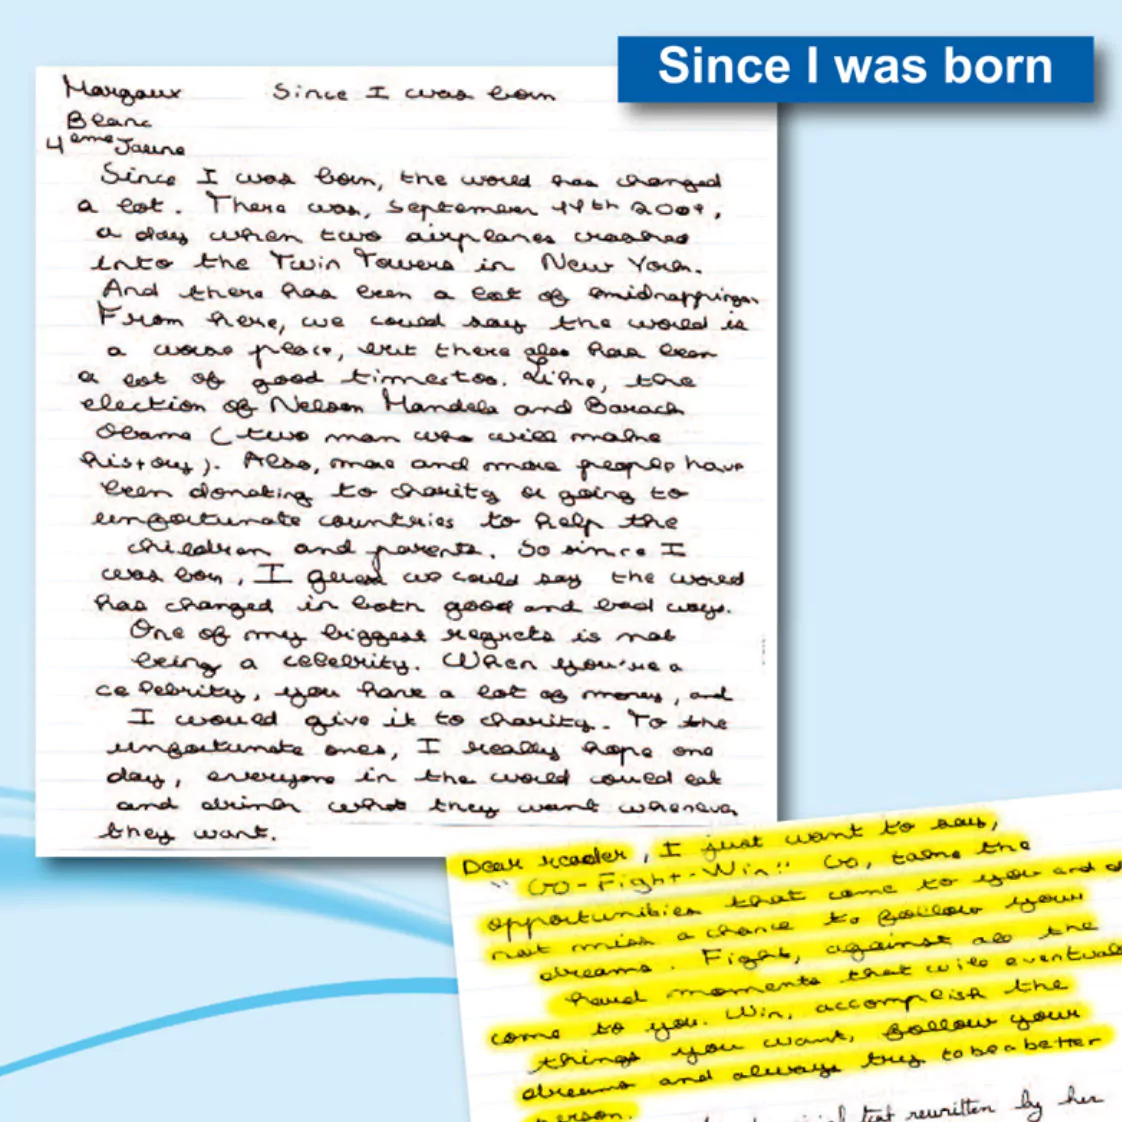 Since I was born
Margaux Since I was born
Blanc
4eme Jaune
Since I was born, the world has changed
a lot. There was, September 11th 2001,
a day when two airplanes crashed
into the Twin Towers in New York.
And there has been a lot of kidnappings.
From here, we could say the world is
a worse place, but there also has been
a lot of good times too. Like, the
election of Nelson Mandela and Barack
Obama (two man who will make
history). Also, more and more people have
been donating to charity or going to
unfortunate countries to help the
children and parents. So since I
was born, I guess we could say the world
has changed in both good and bad ways.
One of my biggest regrets is not
being a celebrity. When you're a
celebrity, you have a lot of money, and
I would give it to charity. To the
unfortunate ones, I really hope one
day, everyone in the world could eat
and drink what they want whenever
they want.
Dear reader, I just want to say,
"Go-Fight-Win!" Go, take the
opportunities that come to you and do
not miss a chance to follow your
dreams. Fight, against all the
hard moments that will eventually
come to you. Win, accomplish the
things you want, follow your
dreams and always try to be a better
person.
text rewritten by her